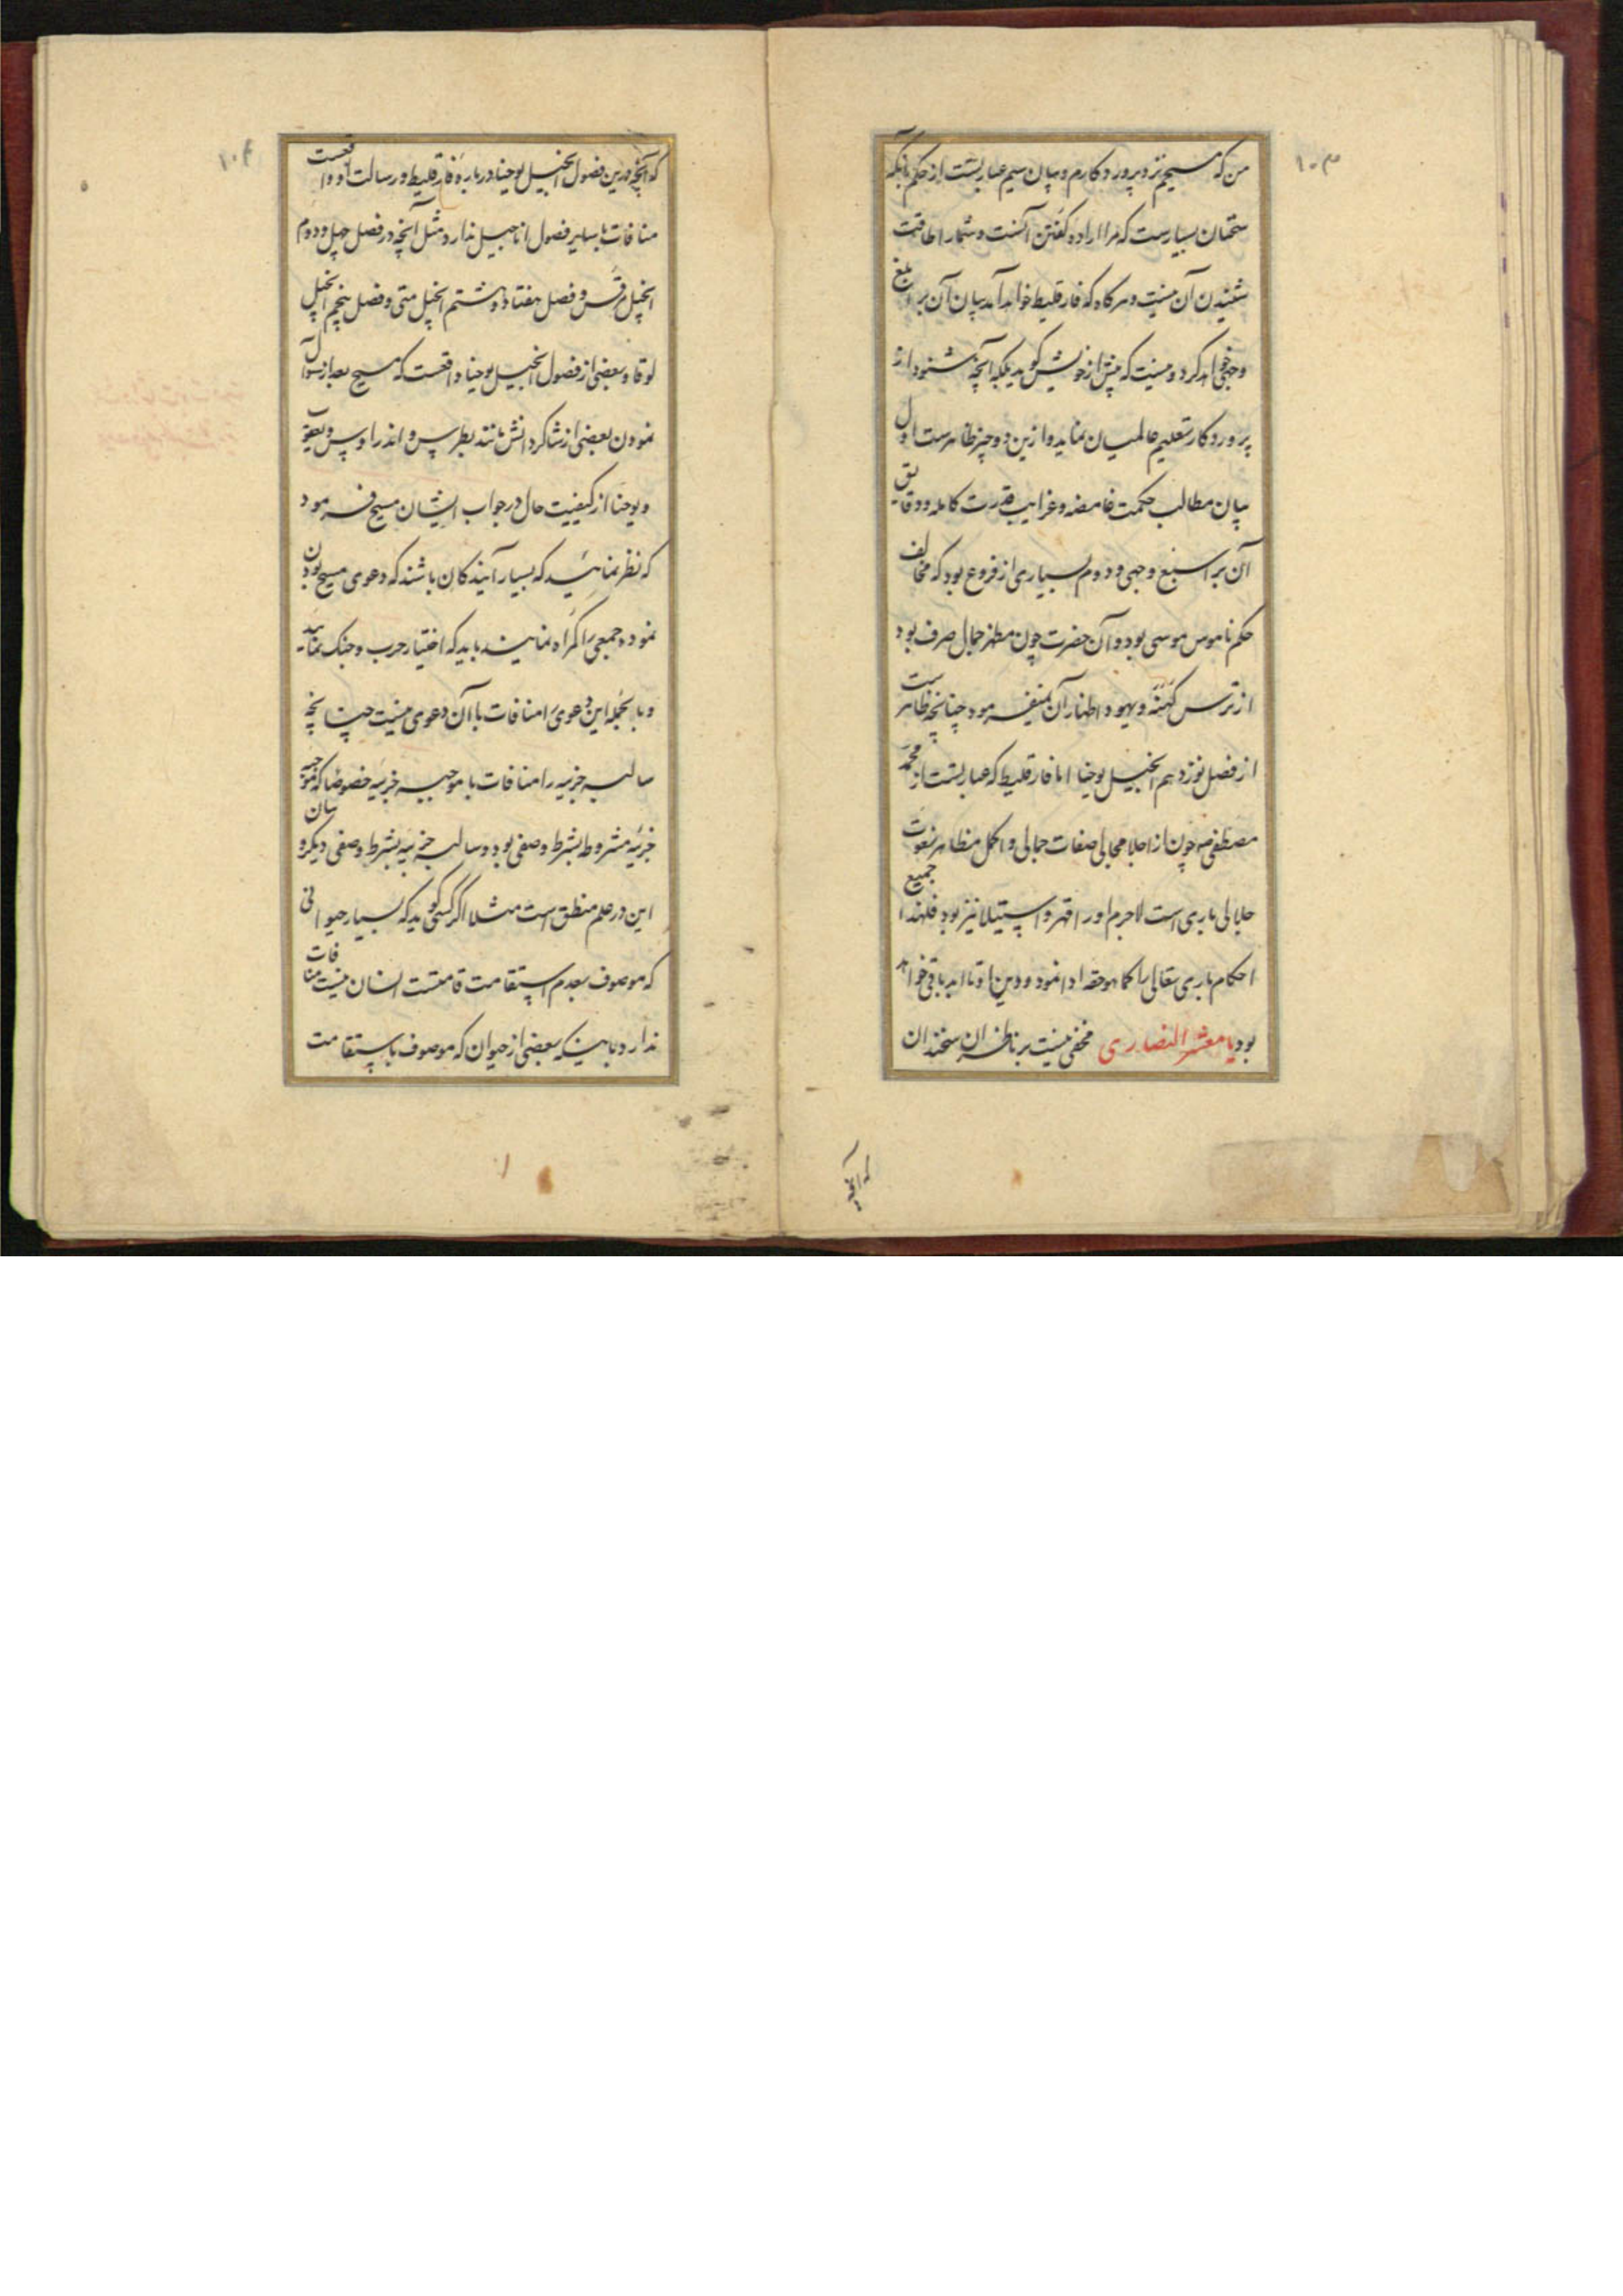 ۱۰۳
من که مسیحم نزد پروردکارم و بیان سیم عبارتست از حکم بانکه
سخنان بسیارست که مرا اراده کفتن آنست و شما را طاقت
شنیدن آن نیست و هرکاه که فارقلیط خواهد آمد بیان آن بر ابلغ
وجهی خواهد کرد و نیست که پیش از خویش کوید بلکه آنچه شنود از
پروردکار تعلیم عالمیان نماید و ازین دو چیز ظاهرست اول
بیان مطالب حکمت غامضه و غرایب قدرت کامله و دقایق
آن بر اسبغ وجهی و دوم بسیاری از فروع بود که مخالف
حکم ناموس موسی بود و آن حضرت چون مظهر جمال صرف بود
از ترس کهنهٔ و یهود اظهار آن نمیفرمود چنانچه ظاهرست
از فصل نوزدهم انجیل یوحنا اما فارقلیط که عبارتست از محمد
مصطفی ص چون از اجلا مجالی صفات جمالی و اکمل مظاهر نعوت
جلالی باری است لاجرم او را قهر و استیلا نیز بود فلهذا جمیع
احکام باری تعالی را کما هو حقه ادا نمود و دین او تا ابد باقی خواهد
بود یا معشر النصاری مخفی نیست بر ناظران سخندان
که آنچه
۱۰۴
که آنچه درین فصول انجیل یوحنا در بارهٔ فارقلیط و رسالت او واقعست
منافات با سایر فصول اناجیل ندارد مثل آنچه در فصل چهل و دوم
انجیل مرقس و فصل هفتاد و هشتم انجیل متی و فصل پنجم انجیل
لوقا و بعضی از فصول انجیل یوحنا واقعست که مسیح بعد از سوال
نمودن بعضی از شاکردانش مانند بطرس و اندراوس و یعقوب
و یوحنا از کیفیت حال در جواب ایشان مسیح فرمود
که نظر نمائید که بسیار آیندکان باشند که دعوی مسیح بودن
نموده جمعی را کمراه نمایند باید که اختیار حرب و جنک نمائید
و بالجمله این دعوی را منافات با آن دعوی نیست چنانچه
سالبه جزییه را منافات با موجبیه جزییه خصوصا که موجبه
جزییه مشروط بشرط وصفی بود و سالبه جزییه بشرط وصفی دیکر و بیان
این در علم منطق است مثلا اکر کسی کوید که بسیار حیوانی
که موصوف بعدم استقامت قامتست انسان نیست منافات
ندارد باینکه بعضی از حیوان که موصوف باستقامت